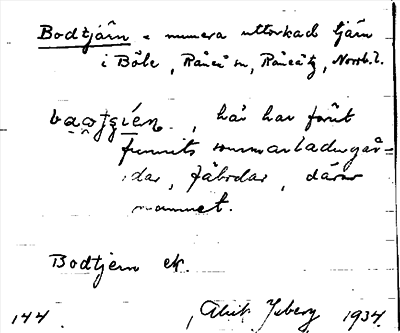 Bodtjärn = numera uttorkad tjärn
i Böle, Råneå sn, Råneå tg, Norrb. l.
här har förut
funnits sommarladugår=
dar, fäbodar, därav
namnet.
Bodtjern ek.
144 Isberg 1934.